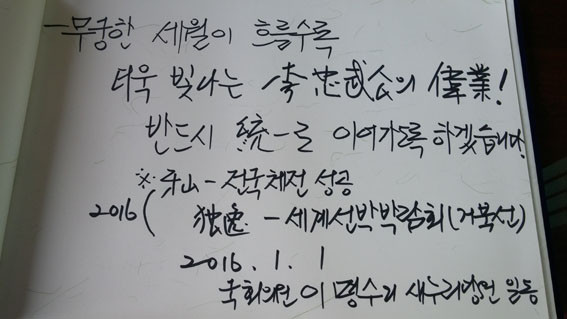 무궁한 세월이 흐를수록
더욱 빛나는 李忠武公의 偉業!
반드시 統一로 이어가도록 하겠습니다.
※ 牙山 - 전국체전 성공
2016 ( - 세계선박박람회(거북선)
2016. 1. 1
국회의원 이명수외 새누리당원 일동